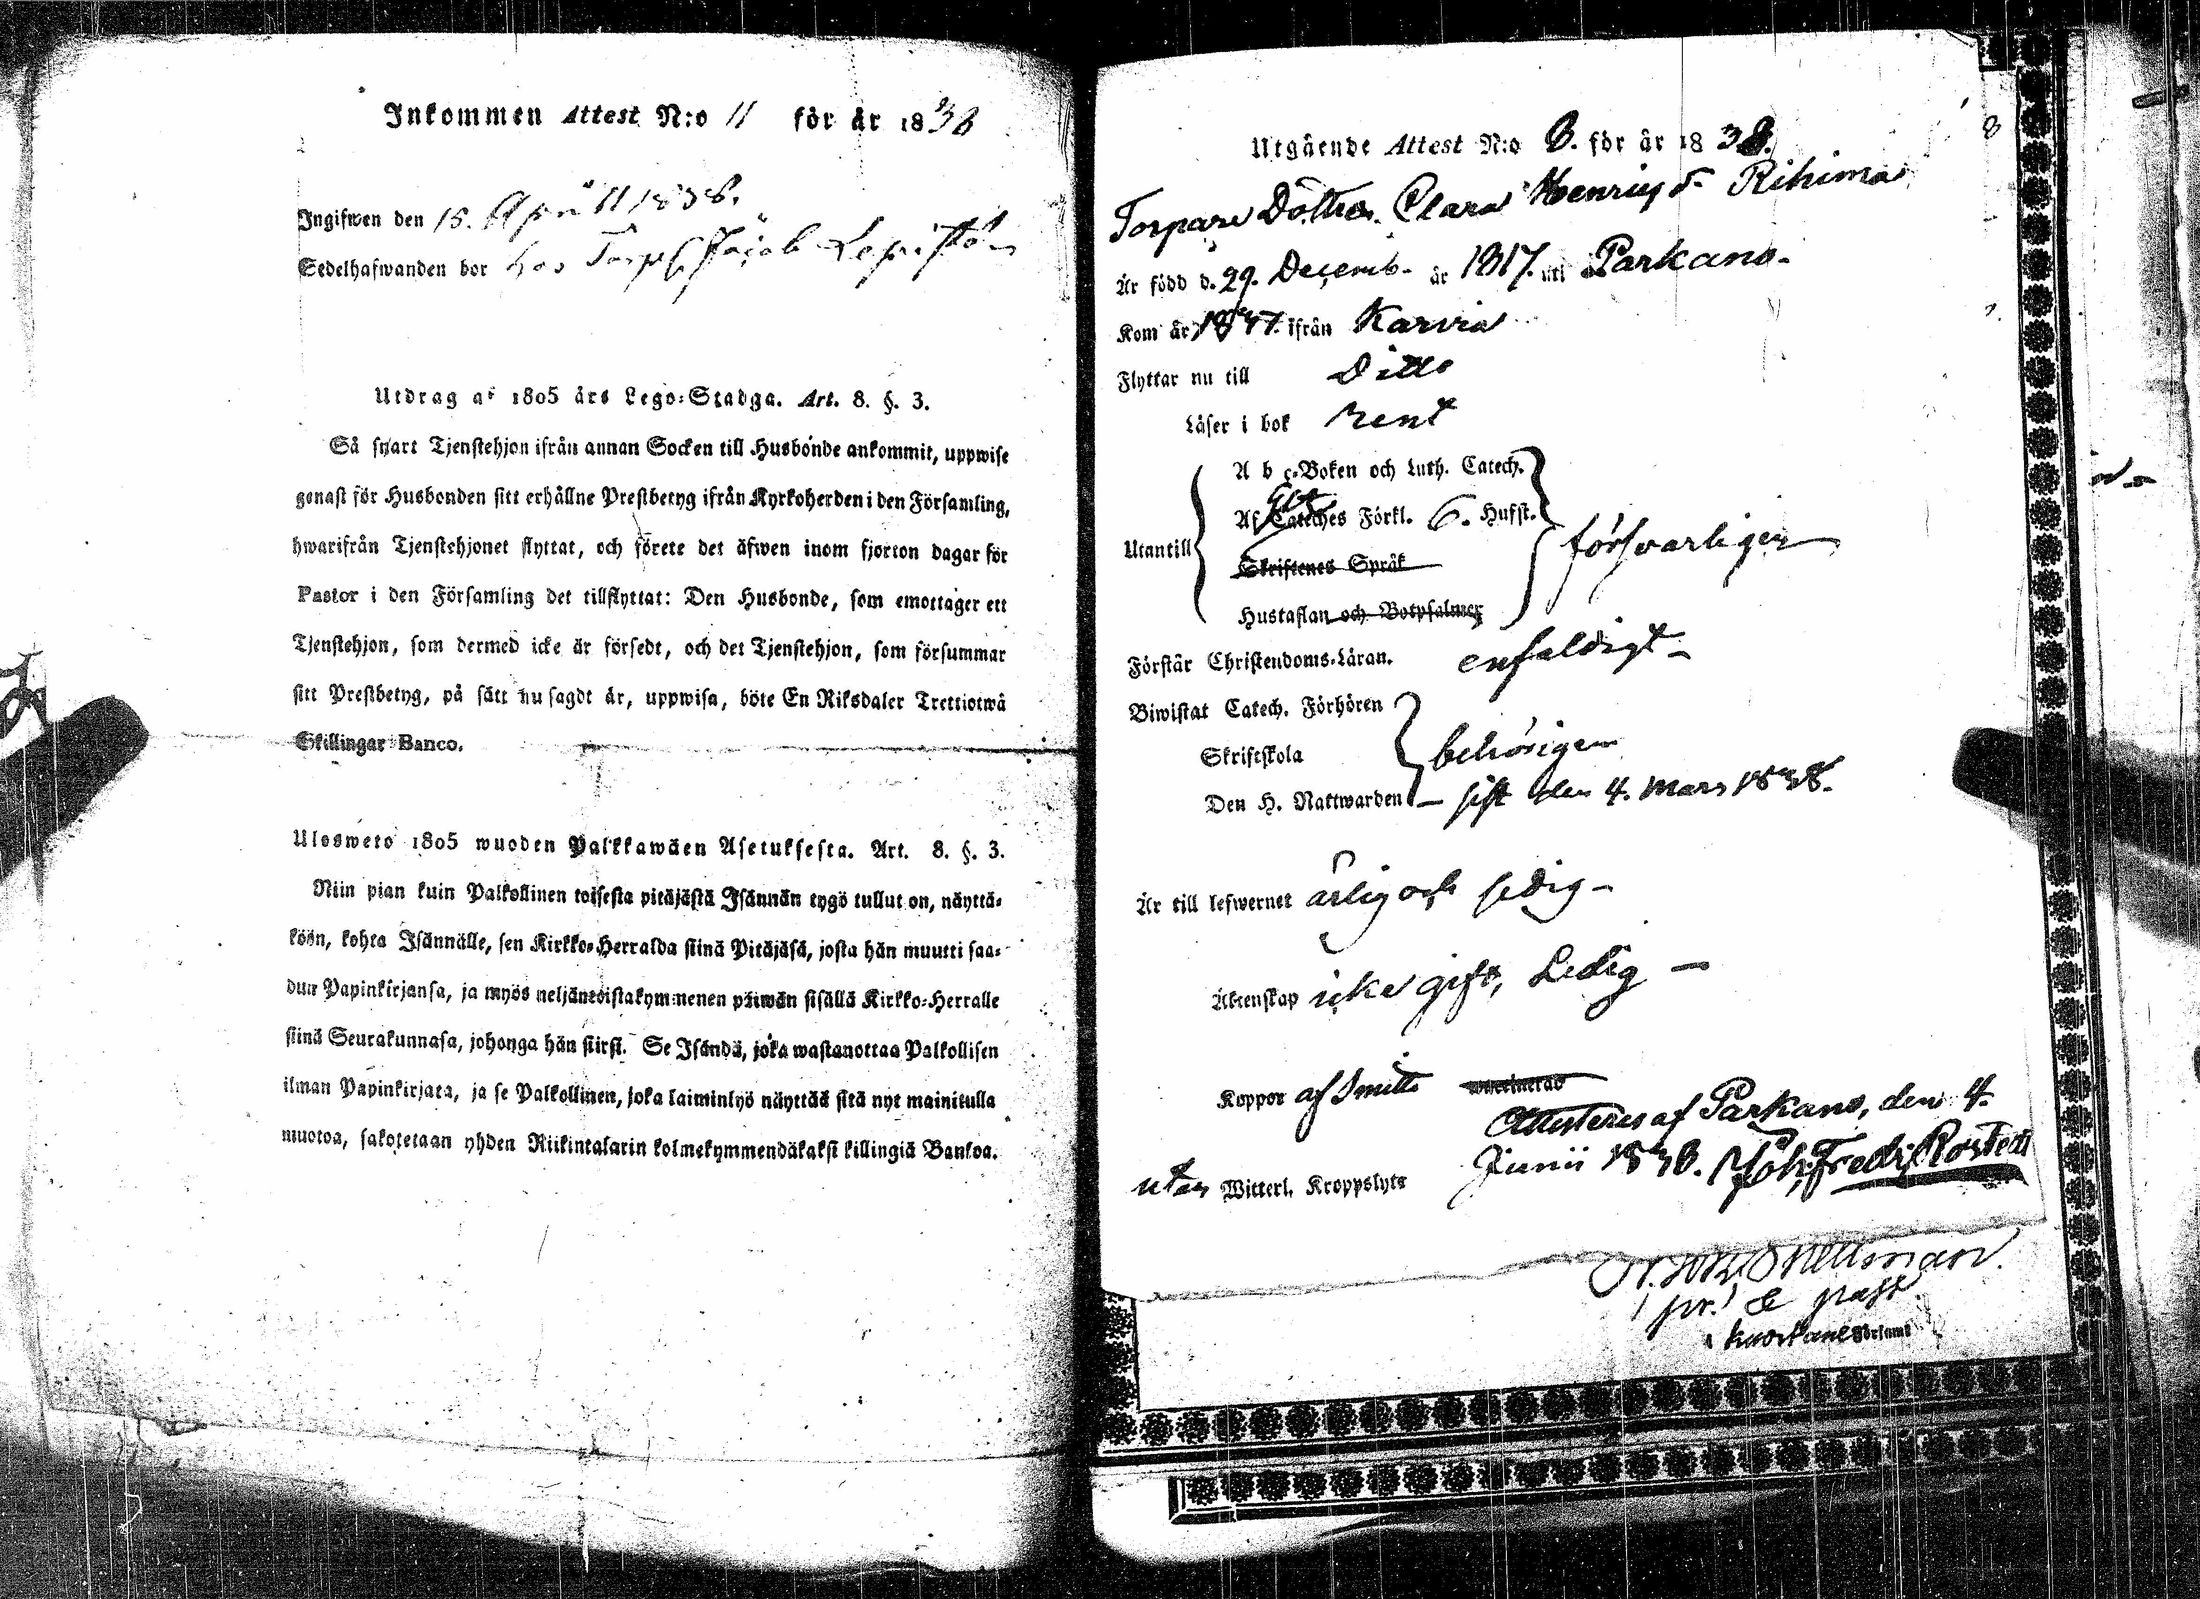 Inkommen Attest N:o 11 för år 1838
Ingifwen den 15. April 1838.
Sedelhafwanden bor hos Torp. Jacob
Utdrag af 1805 års Lego-Stadga. Art. 8. §. 3.
Så snart Tjenstehjon ifrån annan Socken till Husbonde ankommit, uppwise
genast för Husbonden sitt erhållne Prestbetyg ifrån Kyrkoherden i den Församling,
hwarifrån Tjenstehjonet flyttat, och förete det äfwen inom fjorton dagar för
Pastor i den Församling det tillflyttat: Den Husbonde, som emottager ett
Tjenstehjon, som dermed icke är försedt, och det Tjenstehjon, som försummar
sitt Prestbetyg, på sätt nu sagdt är, uppwisa, böte En Riksdaler Trettiotwå
Skillingar Banco.
Ulosweto 1805 wuoden Palkkawäen Asetuksesta. Art. 8. §. 3.
Niin pian kuin Palkollinen toisesta pitäjästä Isännän tygö tullut on, näyttä-
köön, kohta Isännälle, sen Kirkko-Herralda siinä Pitäjäsä, josta hän muutti saa-
dun Papinkirjansa, ja myös neljäntoistakymmenen päiwän sisällä Kirkko-Herralle
siinä Seurakunnasa, johonga hän siirsi. Se Isändä, joka wastanottaa Palkollisen
ilman Papinkirjata, ja se Palkollinen, joka laiminlyö näyttää sitä nyt mainitulla
muotoa, sakotetaan yhden Riikintalarin kolmekymmendäkaksi killingiä Bankoa.
Utgående Attest N:o 8. för år 1838.
Torpare Dottren Clara Henrics d. Rihima
Är född d. 29. Decemb. år 1817. uti Parkano.
Kom år 1837. ifrån Karvia
Flyttar nu till Ditto
Läser i bok rent
Utantill
A b c-Boken och Luth. Catech.
Af Cateches Förkl. 6. Hufst.
Skriftenes Språk
Hustaflan och Botpsalmer
försvarligen
Förstår Christendoms-Läran. enfaldigt
Biwistat Catech. Förhören
Skriftskola behörigen
Den H. Nattwarden sist den 4. Mars 1838.
Är till lefwernet ärlig och sedig
Äktenskap icke gift, Ledig
Koppor af Smitta
Attesteres af Parkano, den 4.
Junii 1838. Joh. Fredr. Rosten
utan Witterl. Kroppslyte
Hellman
pr. & past